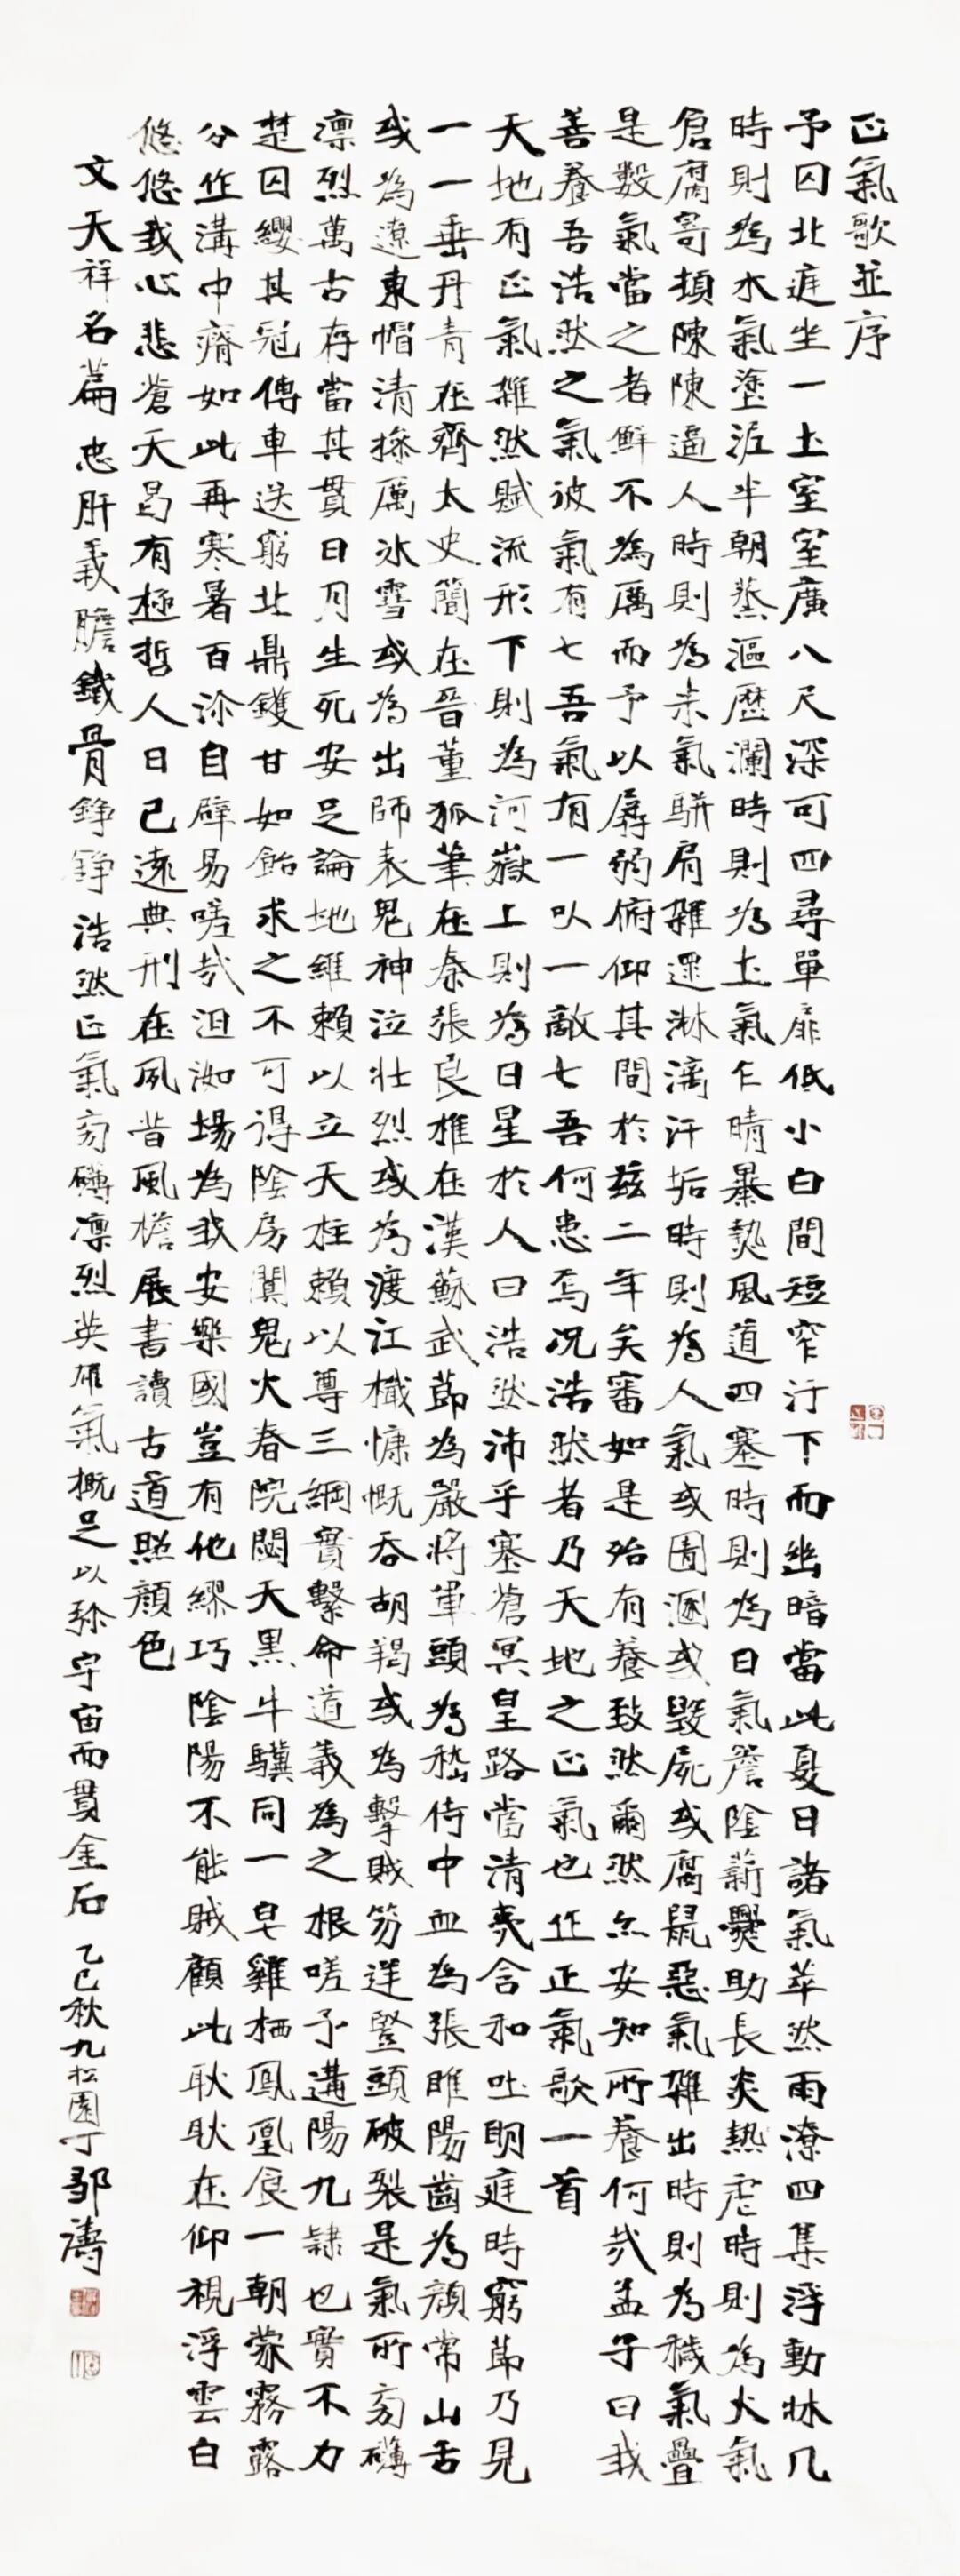 正氣歌並序
予囚北庭坐一土室室廣八尺深可四尋單扉低小白間短窄汙下而幽暗當此夏日諸氣萃然雨潦四集浮動牀几
時則為水氣塗泥半朝蒸漚歷瀾時則為土氣乍晴暴熱風道四塞時則為日氣簷陰薪爨助長炎熱虐時則為火氣
倉腐寄頓陳陳逼人時則為米氣駢肩雜遝淋漓汗垢時則為人氣或圊溷或毀屍或腐鼠惡氣雜出時則為穢氣疊
是數氣當之者鮮不為厲而予以孱弱俯仰其間於茲二年矣審如是殆有養致然爾然亦安知所養何哉孟子曰我
善養吾浩然之氣彼氣有七吾氣有一以一敵七吾何患焉况浩然者乃天地之正氣也作正氣歌一首
天地有正氣雜然賦流形下則為河嶽上則為日星於人曰浩然沛乎塞蒼冥皇路當清夷含和吐明庭時窮節乃見
一一垂丹青在齊太史簡在晉董狐筆在秦張良椎在漢蘇武節為嚴將軍頭為嵇侍中血為張睢陽齒為顏常山舌
或為遼東帽清操厲冰雪或為出師表鬼神泣壯烈或為渡江檝慷慨吞胡羯或為擊賊笏逆豎頭破裂是氣所旁礴
凛烈萬古存當其貫日月生死安足論地維賴以立天柱賴以尊三綱實繫命道義為之根嗟予遘陽九隸也實不力
楚囚纓其冠傳車送窮北鼎鑊甘如飴求之不可得陰房闃鬼火春院閟天黑牛驥同一皂雞栖鳳凰食一朝蒙霧露
分作溝中瘠如此再寒暑百沴自辟易嗟哉沮洳場為我安樂國豈有他繆巧陰陽不能賊顧此耿耿在仰視浮雲白
悠悠我心悲蒼天曷有極哲人日已遠典刑在夙昔風檐展書讀古道照顏色
文天祥名篇忠肝義膽鐵骨錚錚浩然正氣旁礴凛烈英雄氣概足以弥宇宙而貫金石 乙巳秋九松園丁鄒濤